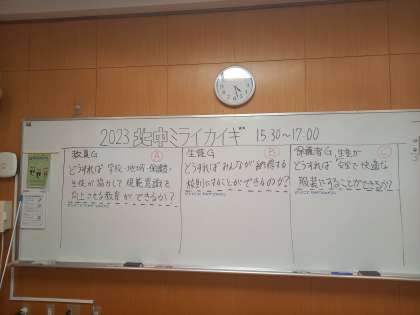 2023 北中ミライカイギ 15:30〜17:00
教員G A
どうすれば 学校・地域・保護者・
生徒が協力して 規範意識を
向上させる教育ができるか?
生徒G B
どうすればみんなが納得する
校則にすることができるのか?
保護者G C
どうすれば 生徒が安全で快適な
服装にすることができるか?